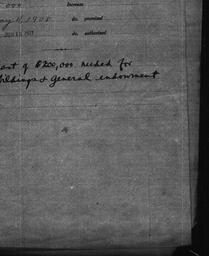 Increase
ay 11, 1905 do. promised
do. authorized
ant of $200,000 needed for
ildings & General endowment